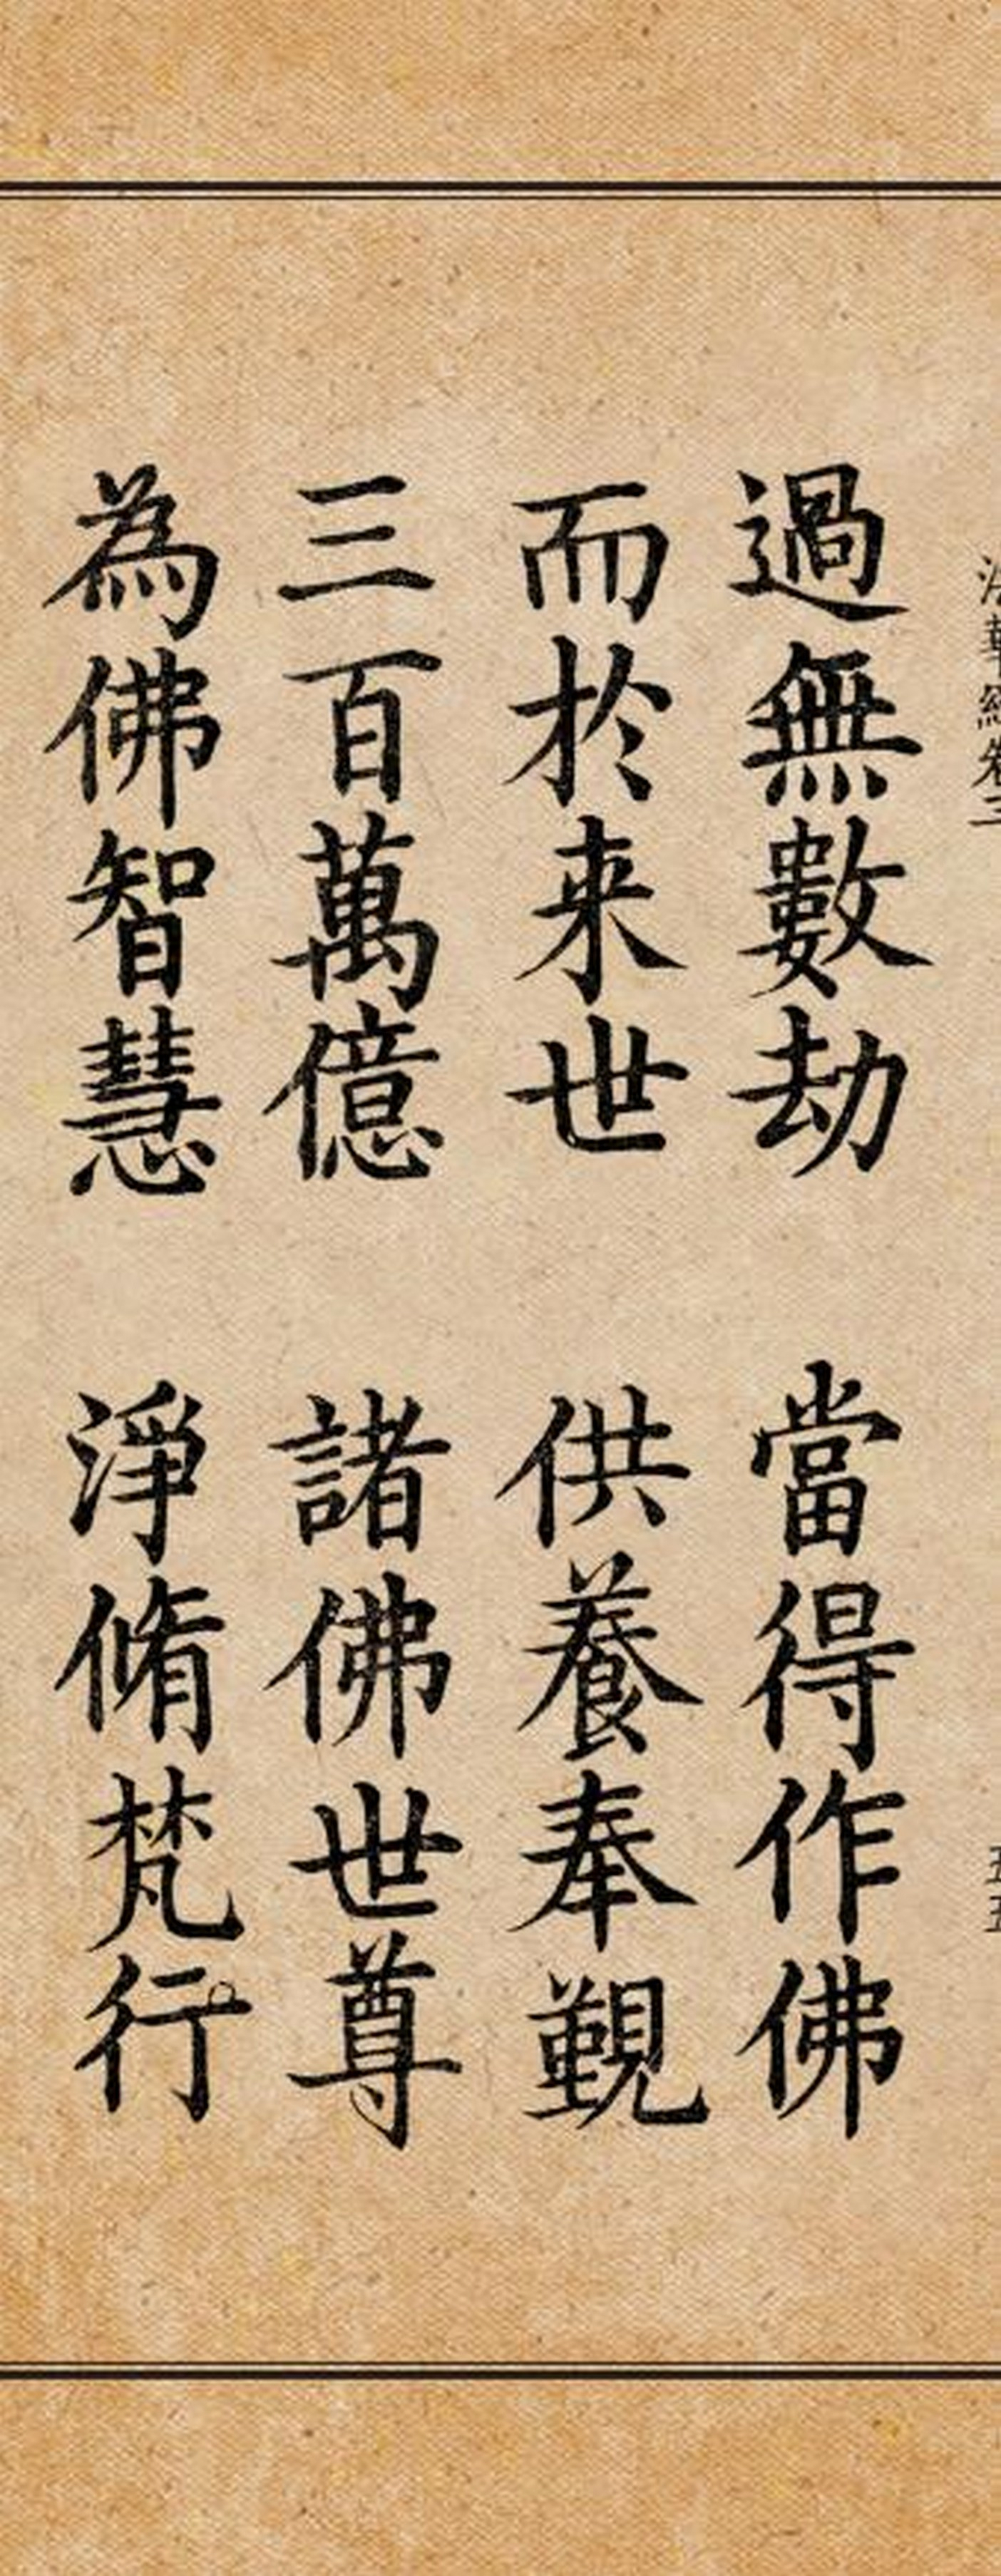 法華經卷三 五五
過無數劫 當得作佛
而於来世 供養奉覲
三百萬億 諸佛世尊
為佛智慧 淨脩梵行